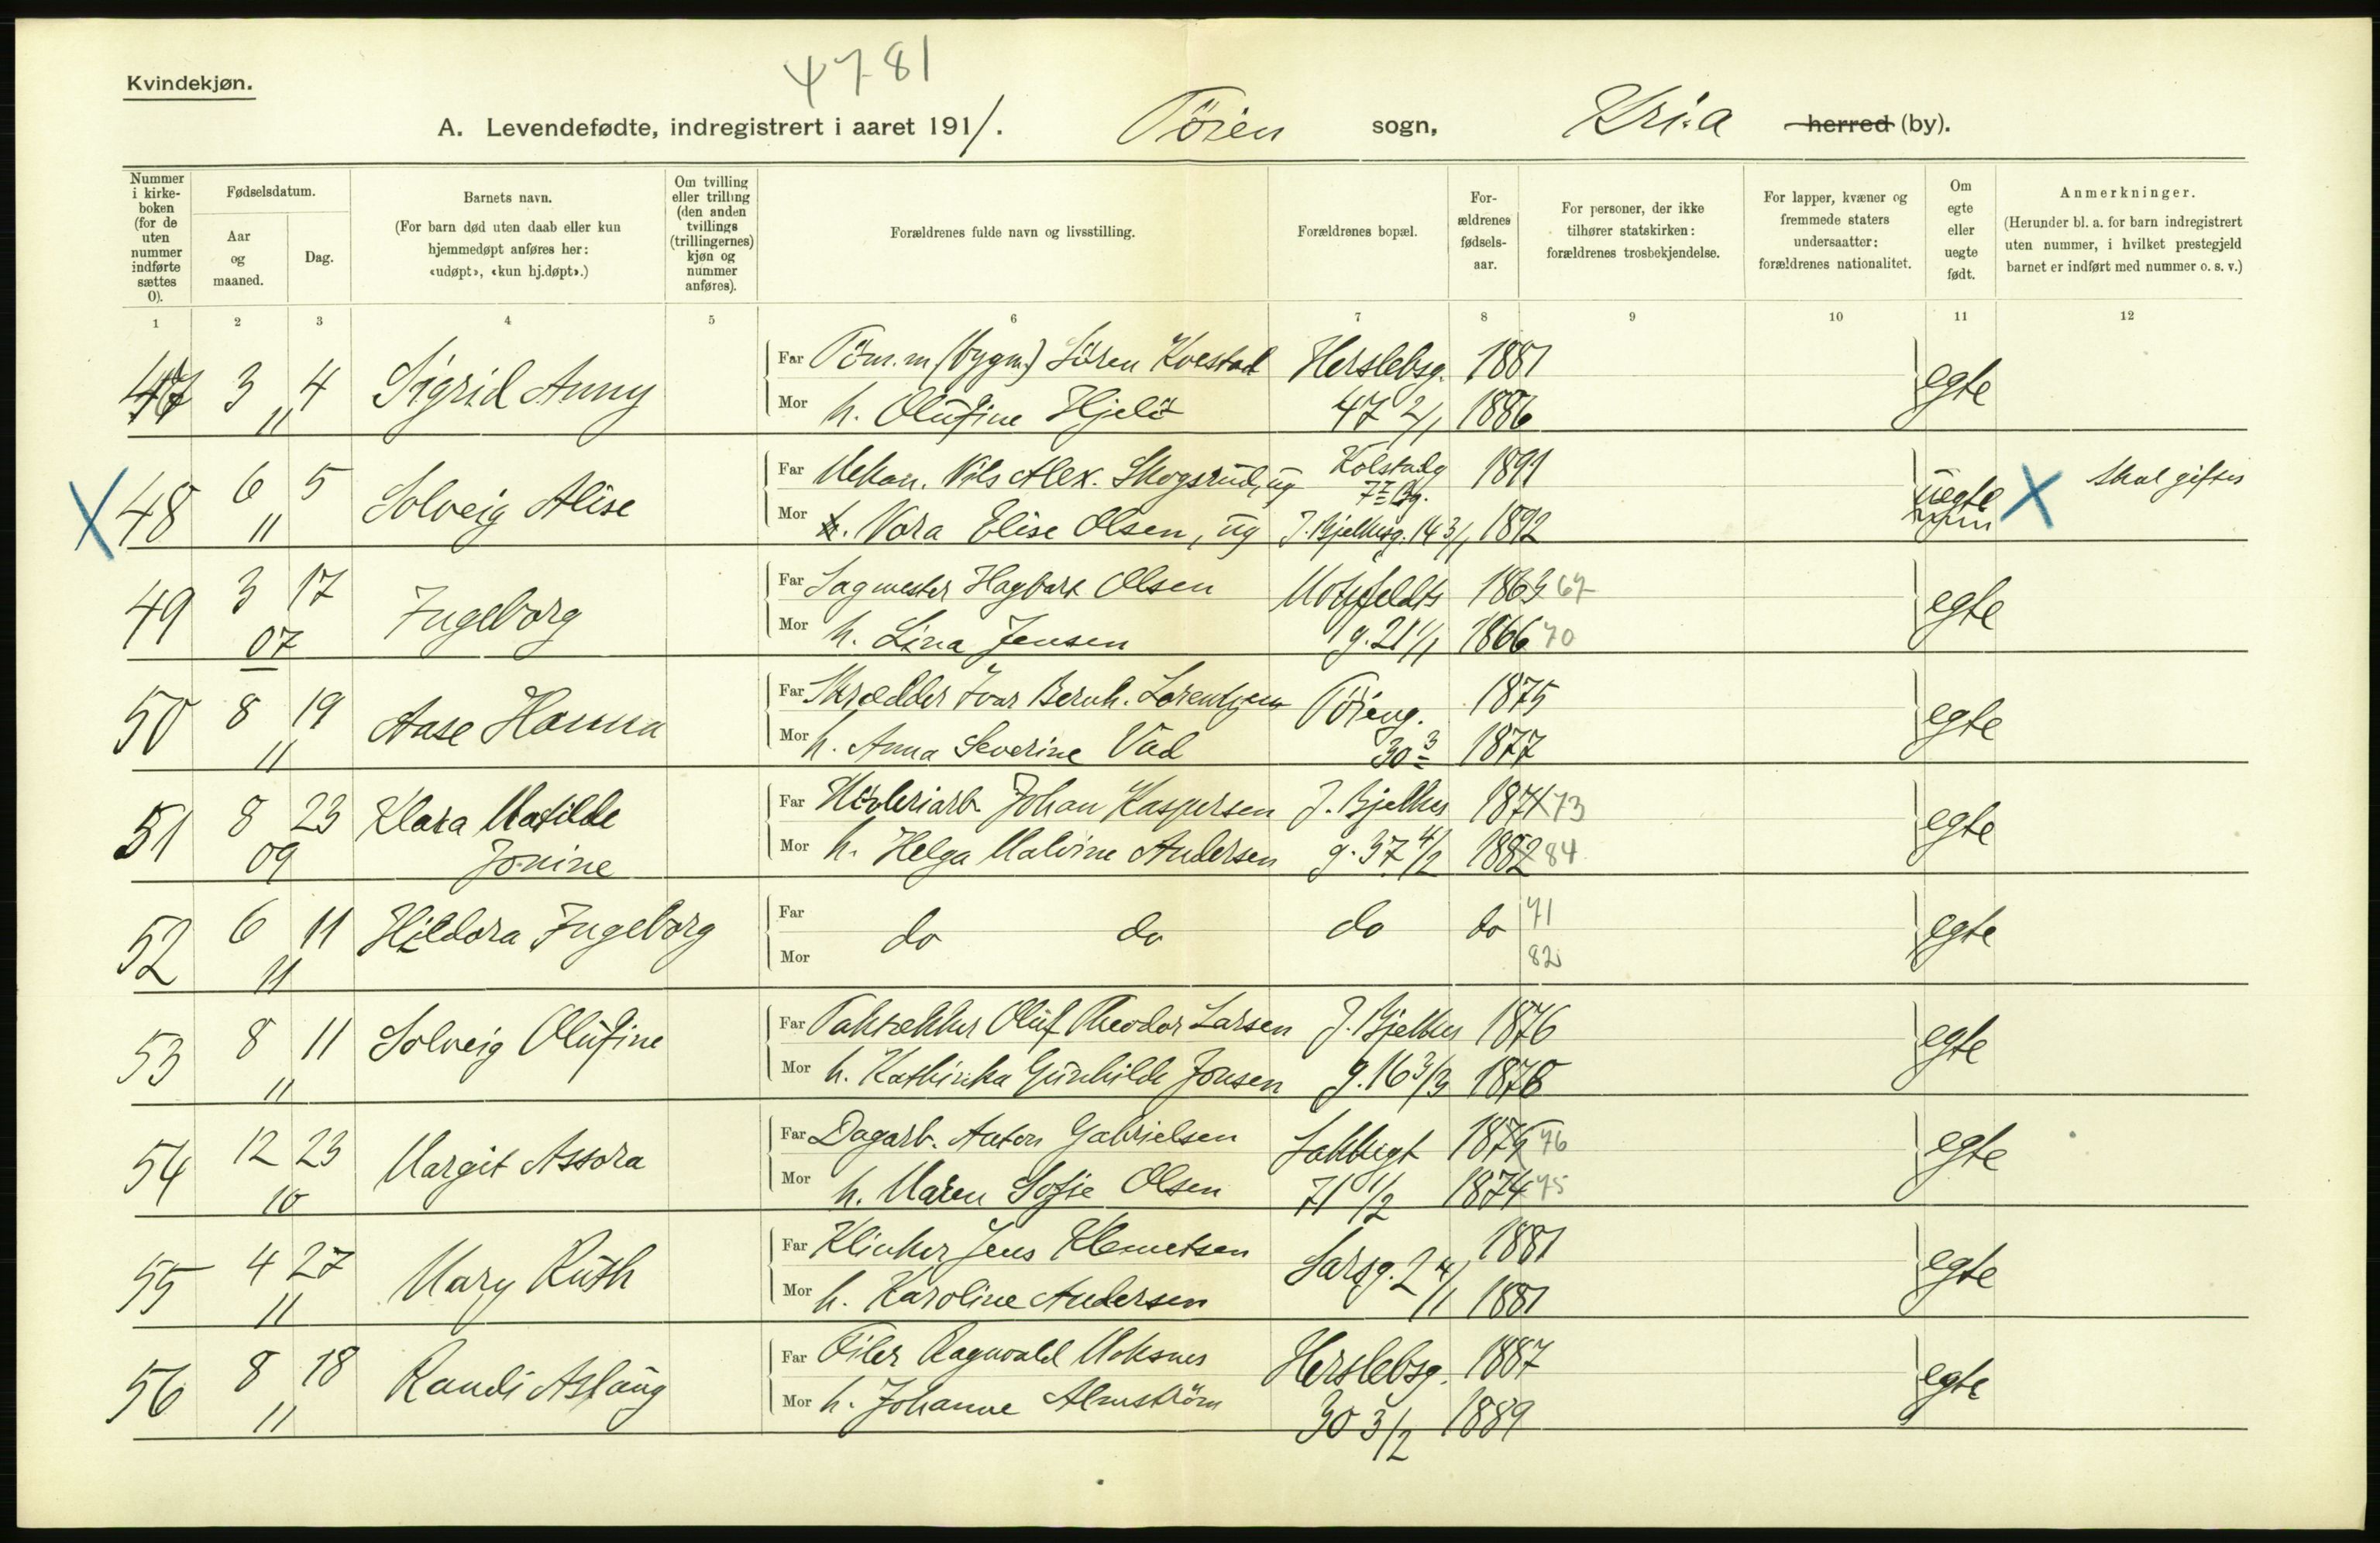 4781
Kvindekjøn.
A. Levendefødte, indregistrert i aaret 1911. Töien sogn, Kri.a herred (by).
Nummer i kirke-boken (for de uten nummer indførte sættes 0).
Fødselsdatum.
Aar og maaned.
Dag.
Barnets navn.
(For barn død uten daab eller kun hjemmedøpt anføres her: «udøpt», «kun hj.døpt».)
Om tvilling eller trilling (den anden tvillings (trillingernes) kjøn og nummer anføres).
Forældrenes fulde navn og livsstilling.
Forældrenes bopæl.
For-ældrenes fødsels-aar.
For personer, der ikke tilhører statskirken: forældrenes trosbekjendelse.
For lapper, kvæner og fremmede staters undersaatter: forældrenes nationalitet.
Om egte eller uegte født.
Anmerkninger.
(Herunder bl. a. for barn indregistrert uten nummer, i hvilket prestegjeld barnet er indført med nummer o. s. v.)
1 2 3 4 5 6 7 8 9 10 11 12
47 3 4 Sigrid Anny Far Töm.m (bygm.) Sören Kvestad Herslebsg. 1881 egte
11 Mor h. Olufine Hjelö 47 2/1 1886
X 48 6 5 Solveig Alise Far Mekan. Nils Alex. Skogsrud, ug Kolstadg 7 II Bg. 1891 uegte X Skal giftes
11 Mor Nora Elise Olsen, ug J. Bjelkesg. 14 3/1 1892
49 3 17 Ingeborg Far Sagmester Hagbart Olsen Motzfeldts 1869 67 egte
07 Mor h. Lina Jensen g. 21 1/1 1866 70
50 8 19 Aase Hanna Far Skrædder Ivar Bernh. Lorentzen Töieng. 1875 egte
11 Mor h. Anna Severine Vad 30 3 1877
51 8 23 Klara Matilde Far Hövleriarb. Johan Kaspersen J. Bjelkes 1871 73 egte
09 Jonine Mor h. Helga Malvine Andersen g. 37 4/2 1882 84
52 6 11 Hildora Ingeborg Far do do do do 71 egte
11 Mor 82
53 8 11 Solveig Olufine Far Taktækker Oluf Theodor Larsen J. Bjelkes 1876 egte
11 Mor h. Kathinka Gunhilde Jonsen g. 16 3/3 1878
54 12 23 Margit Assora Far Dagarb. Anton Gabrielsen Lakkegt 1875 76 egte
10 Mor h. Maren Sofie Olsen 71 1/2 1874 75
55 4 27 Mary Ruth Far Klinker Jens Klemetsen Sarsg. 2 4/1 1881 egte
11 Mor h. Karoline Andersen 1881
56 8 18 Randi Aslaug Far Filer Ragnvald Moksnes Herslebsg. 1887 egte
11 Mor h. Johanne Almström 30 3/2 1889